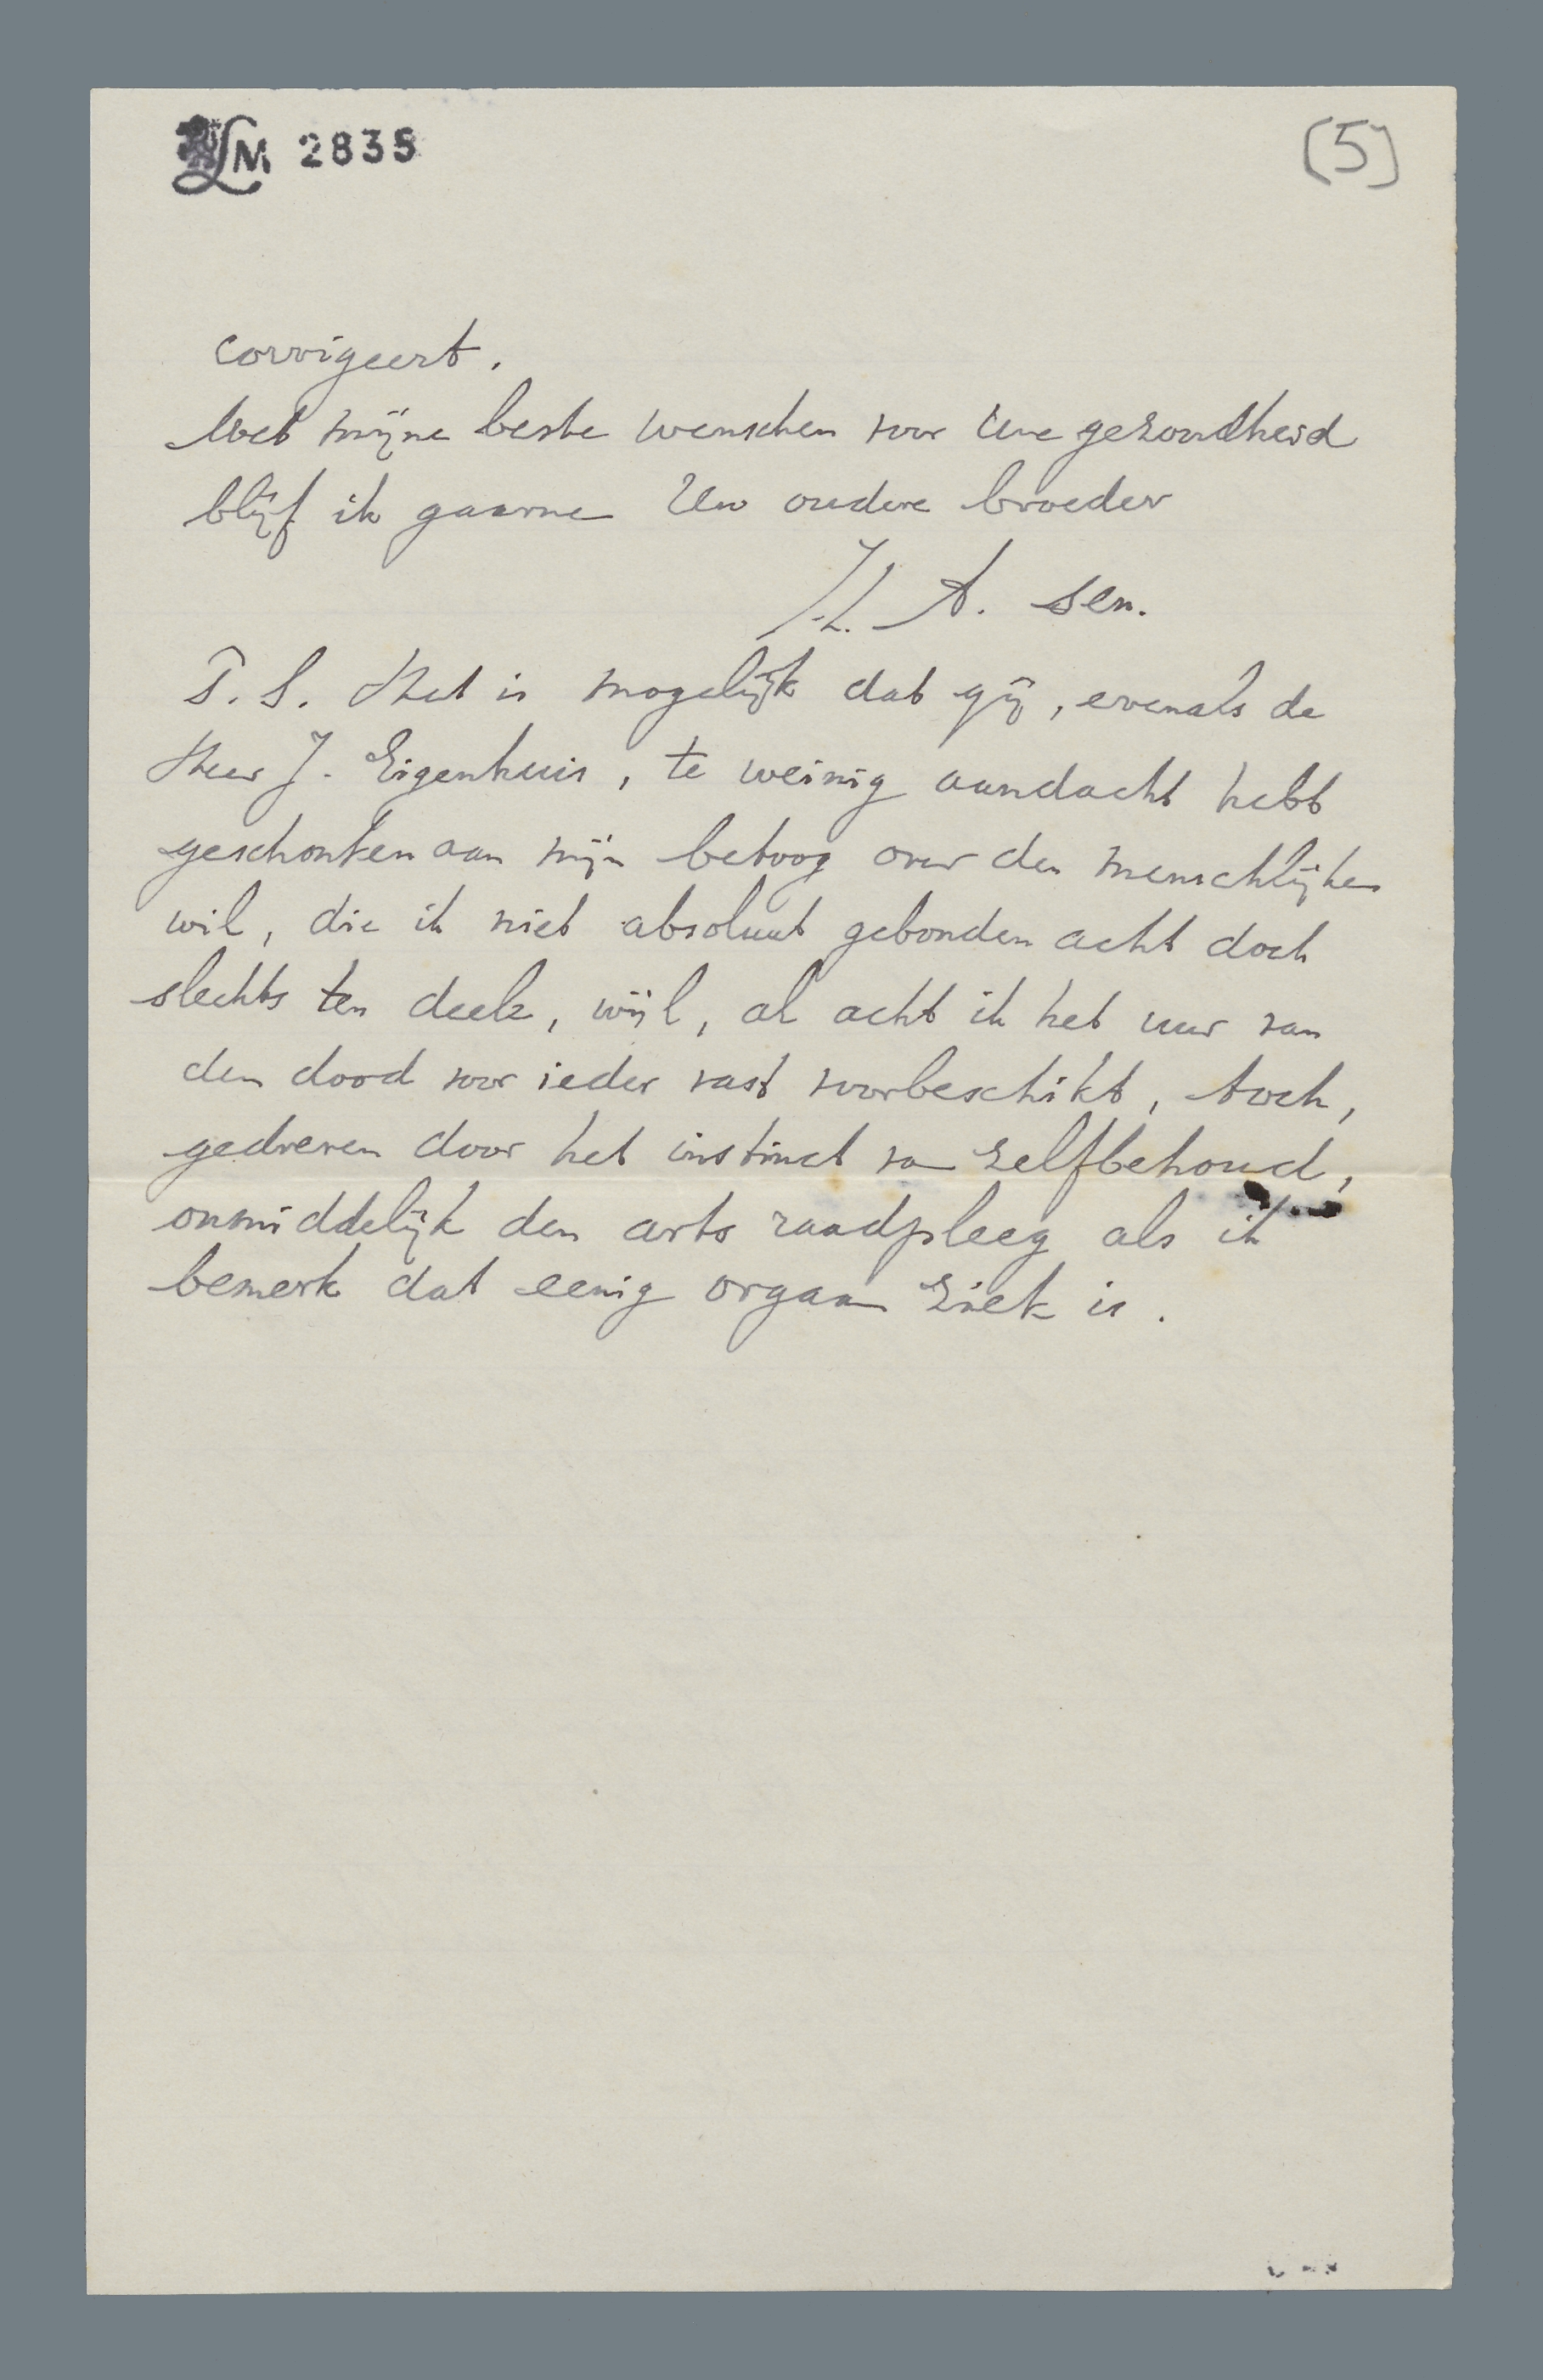 LM 2835
(5)
corrigeert.
Met mijne beste wenschen voor Uwe gezondheid
blijf ik gaarne Uw oudere broeder
A. sen.
P.S. Het is mogelijk dat gij, evenals de
Heer J. Eigenhuis, te weinig aandacht hebt
geschonken aan mijn betoog over den menschlijken
wil, die ik niet absoluut gebonden acht doch
slechts ten deele, wijl, al acht ik het uur van
den dood voor ieder vast voorbeschikt, toch,
gedreven door het instinct van zelfbehoud,
onmiddelijk den arts raadpleeg als ik
bemerk dat eenig orgaan ziek is.